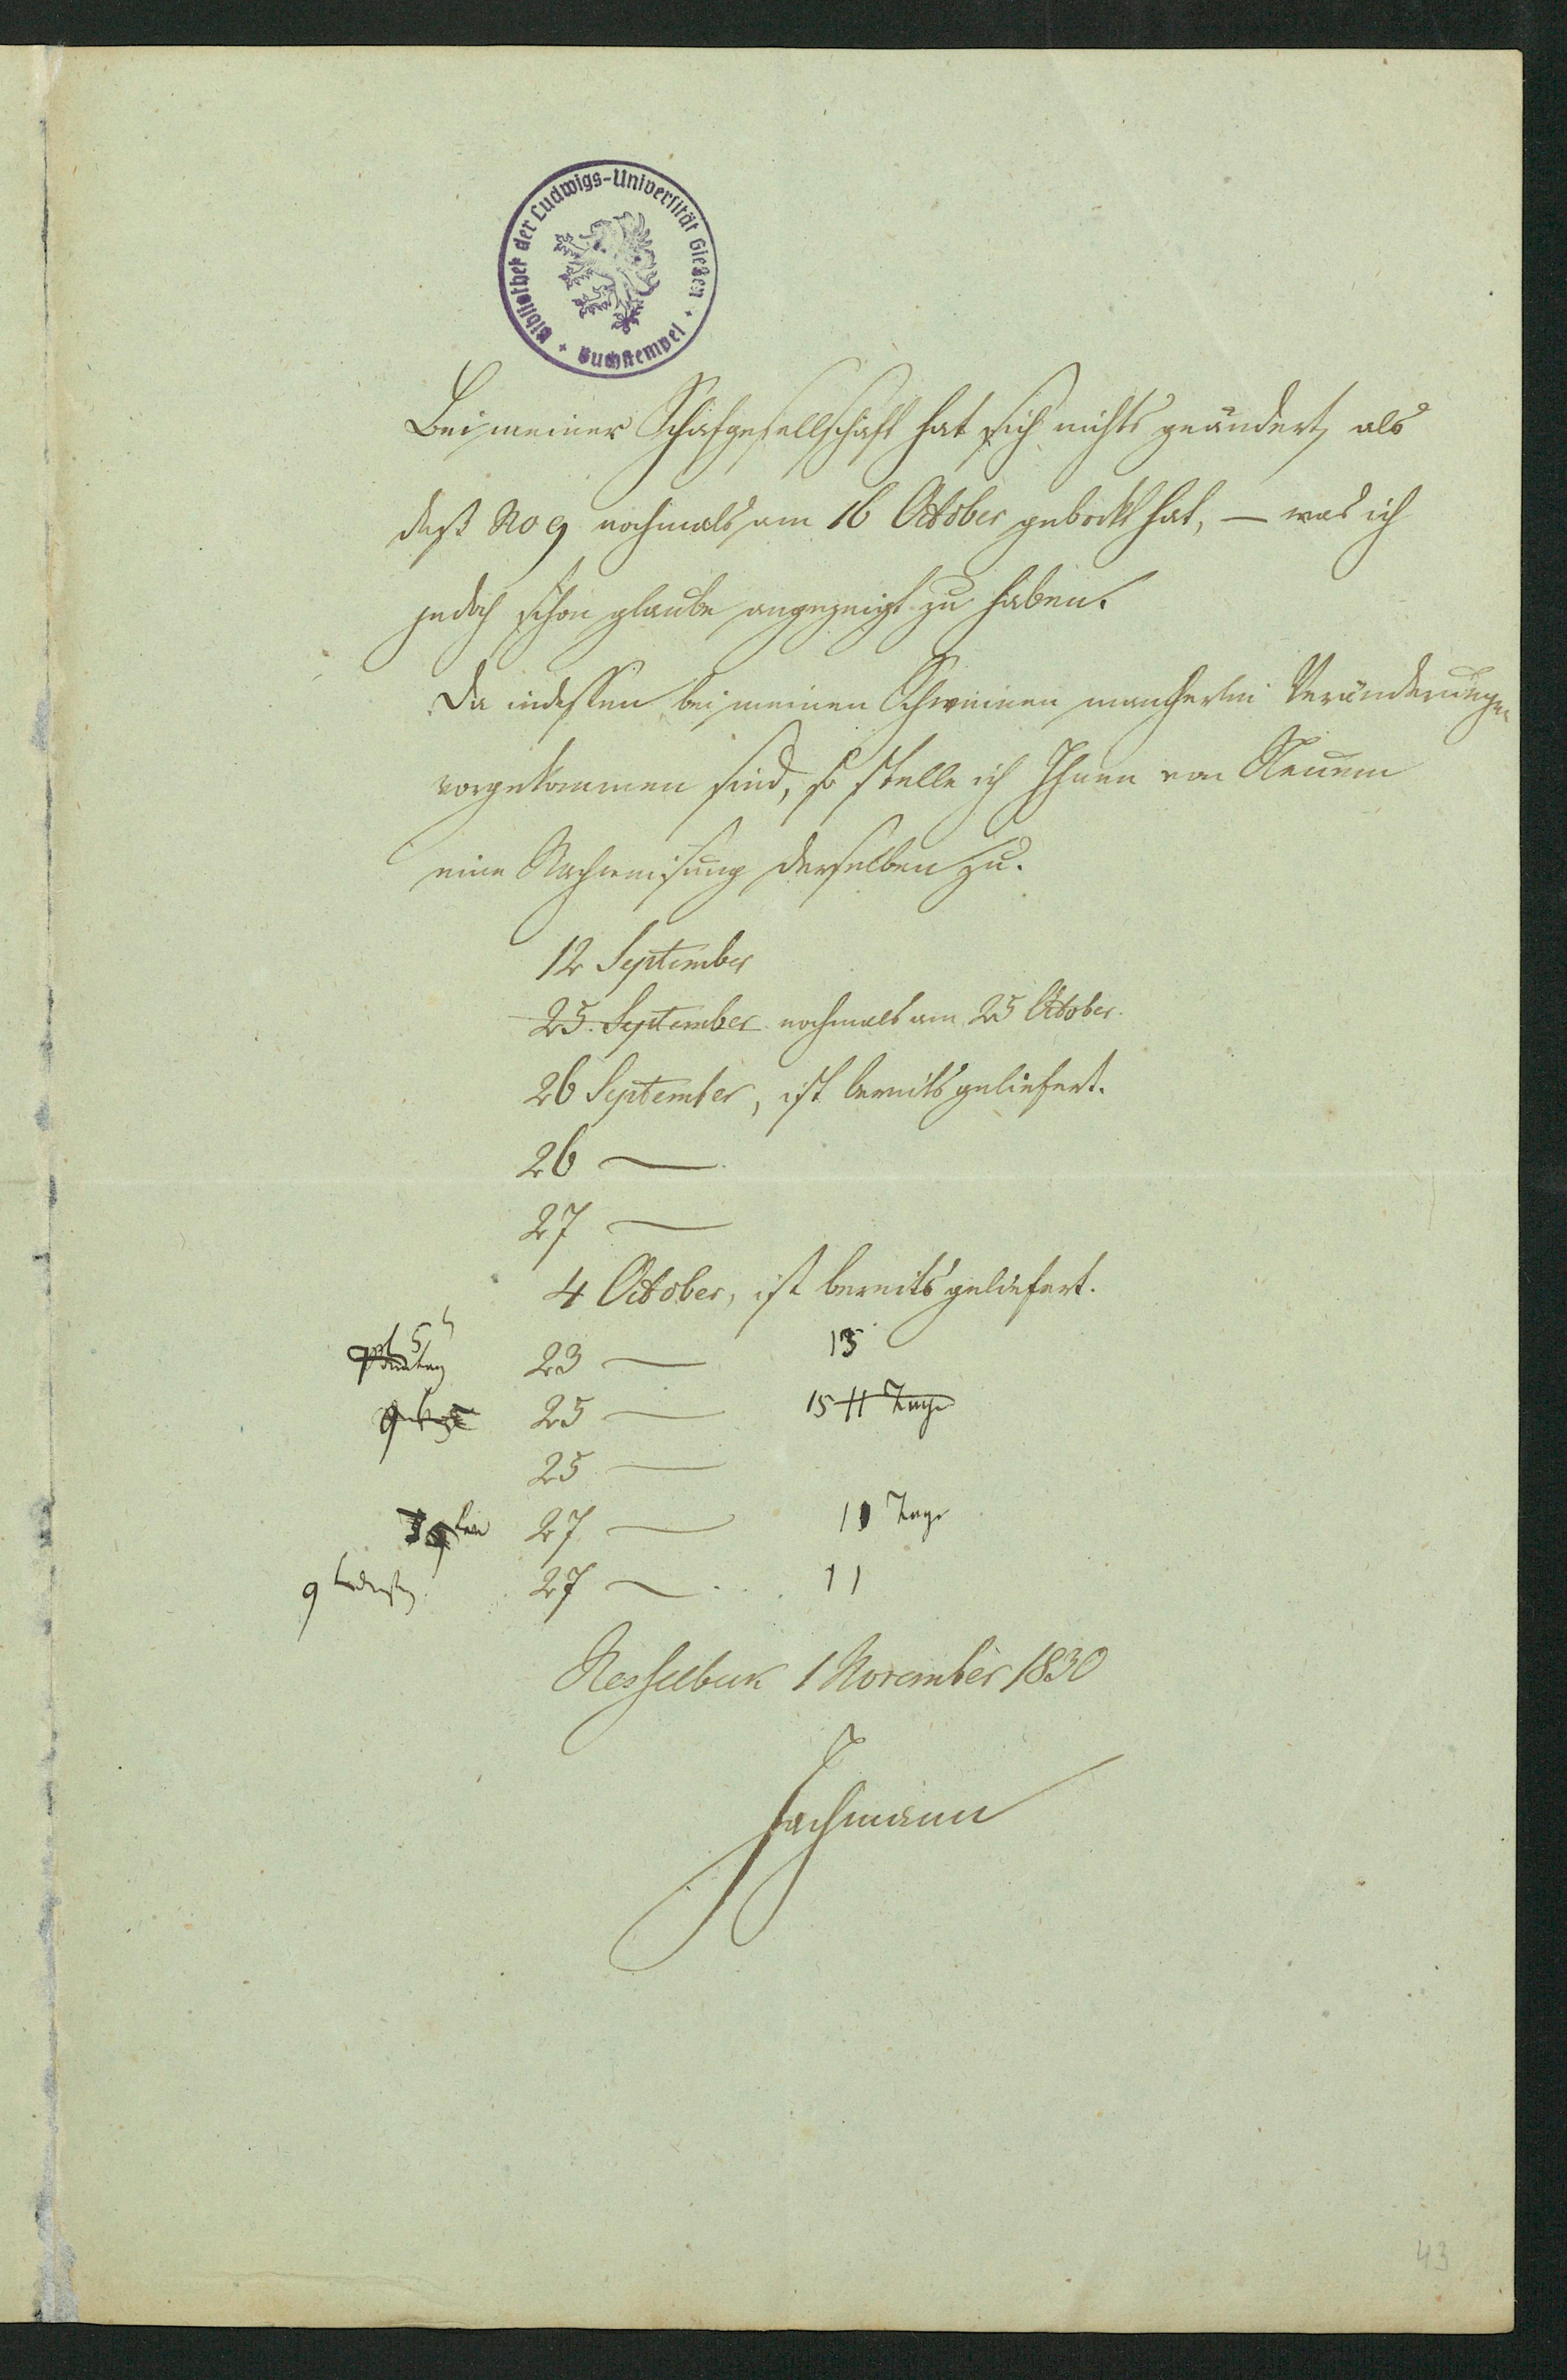 Bibliothek der Ludwigs-Universität Gießen
Buchstempel
Bei meiner Schafgesellschaft hat sich nichts geändert, als
daß No 9 nochmals am 16 October gebockt hat, — was ich
jedoch schon glaube angezeigt zu haben.
Da indessen bei meinen Schweinen mancherlei Veränderungen
vorgekommen sind, so stelle ich Ihnen von Neuem
eine Nachweisung derselben zu.
12 September
25. September nochmals am 25 October.
26 September, ist bereits geliefert.
26 —
27 —
4 October, ist bereits geliefert.
23 — 13
25 — 15 11 Tage
25 —
27 — 11 Tage
9 27 — 11
Nesselbek 1 November 1830
Jachmann
43